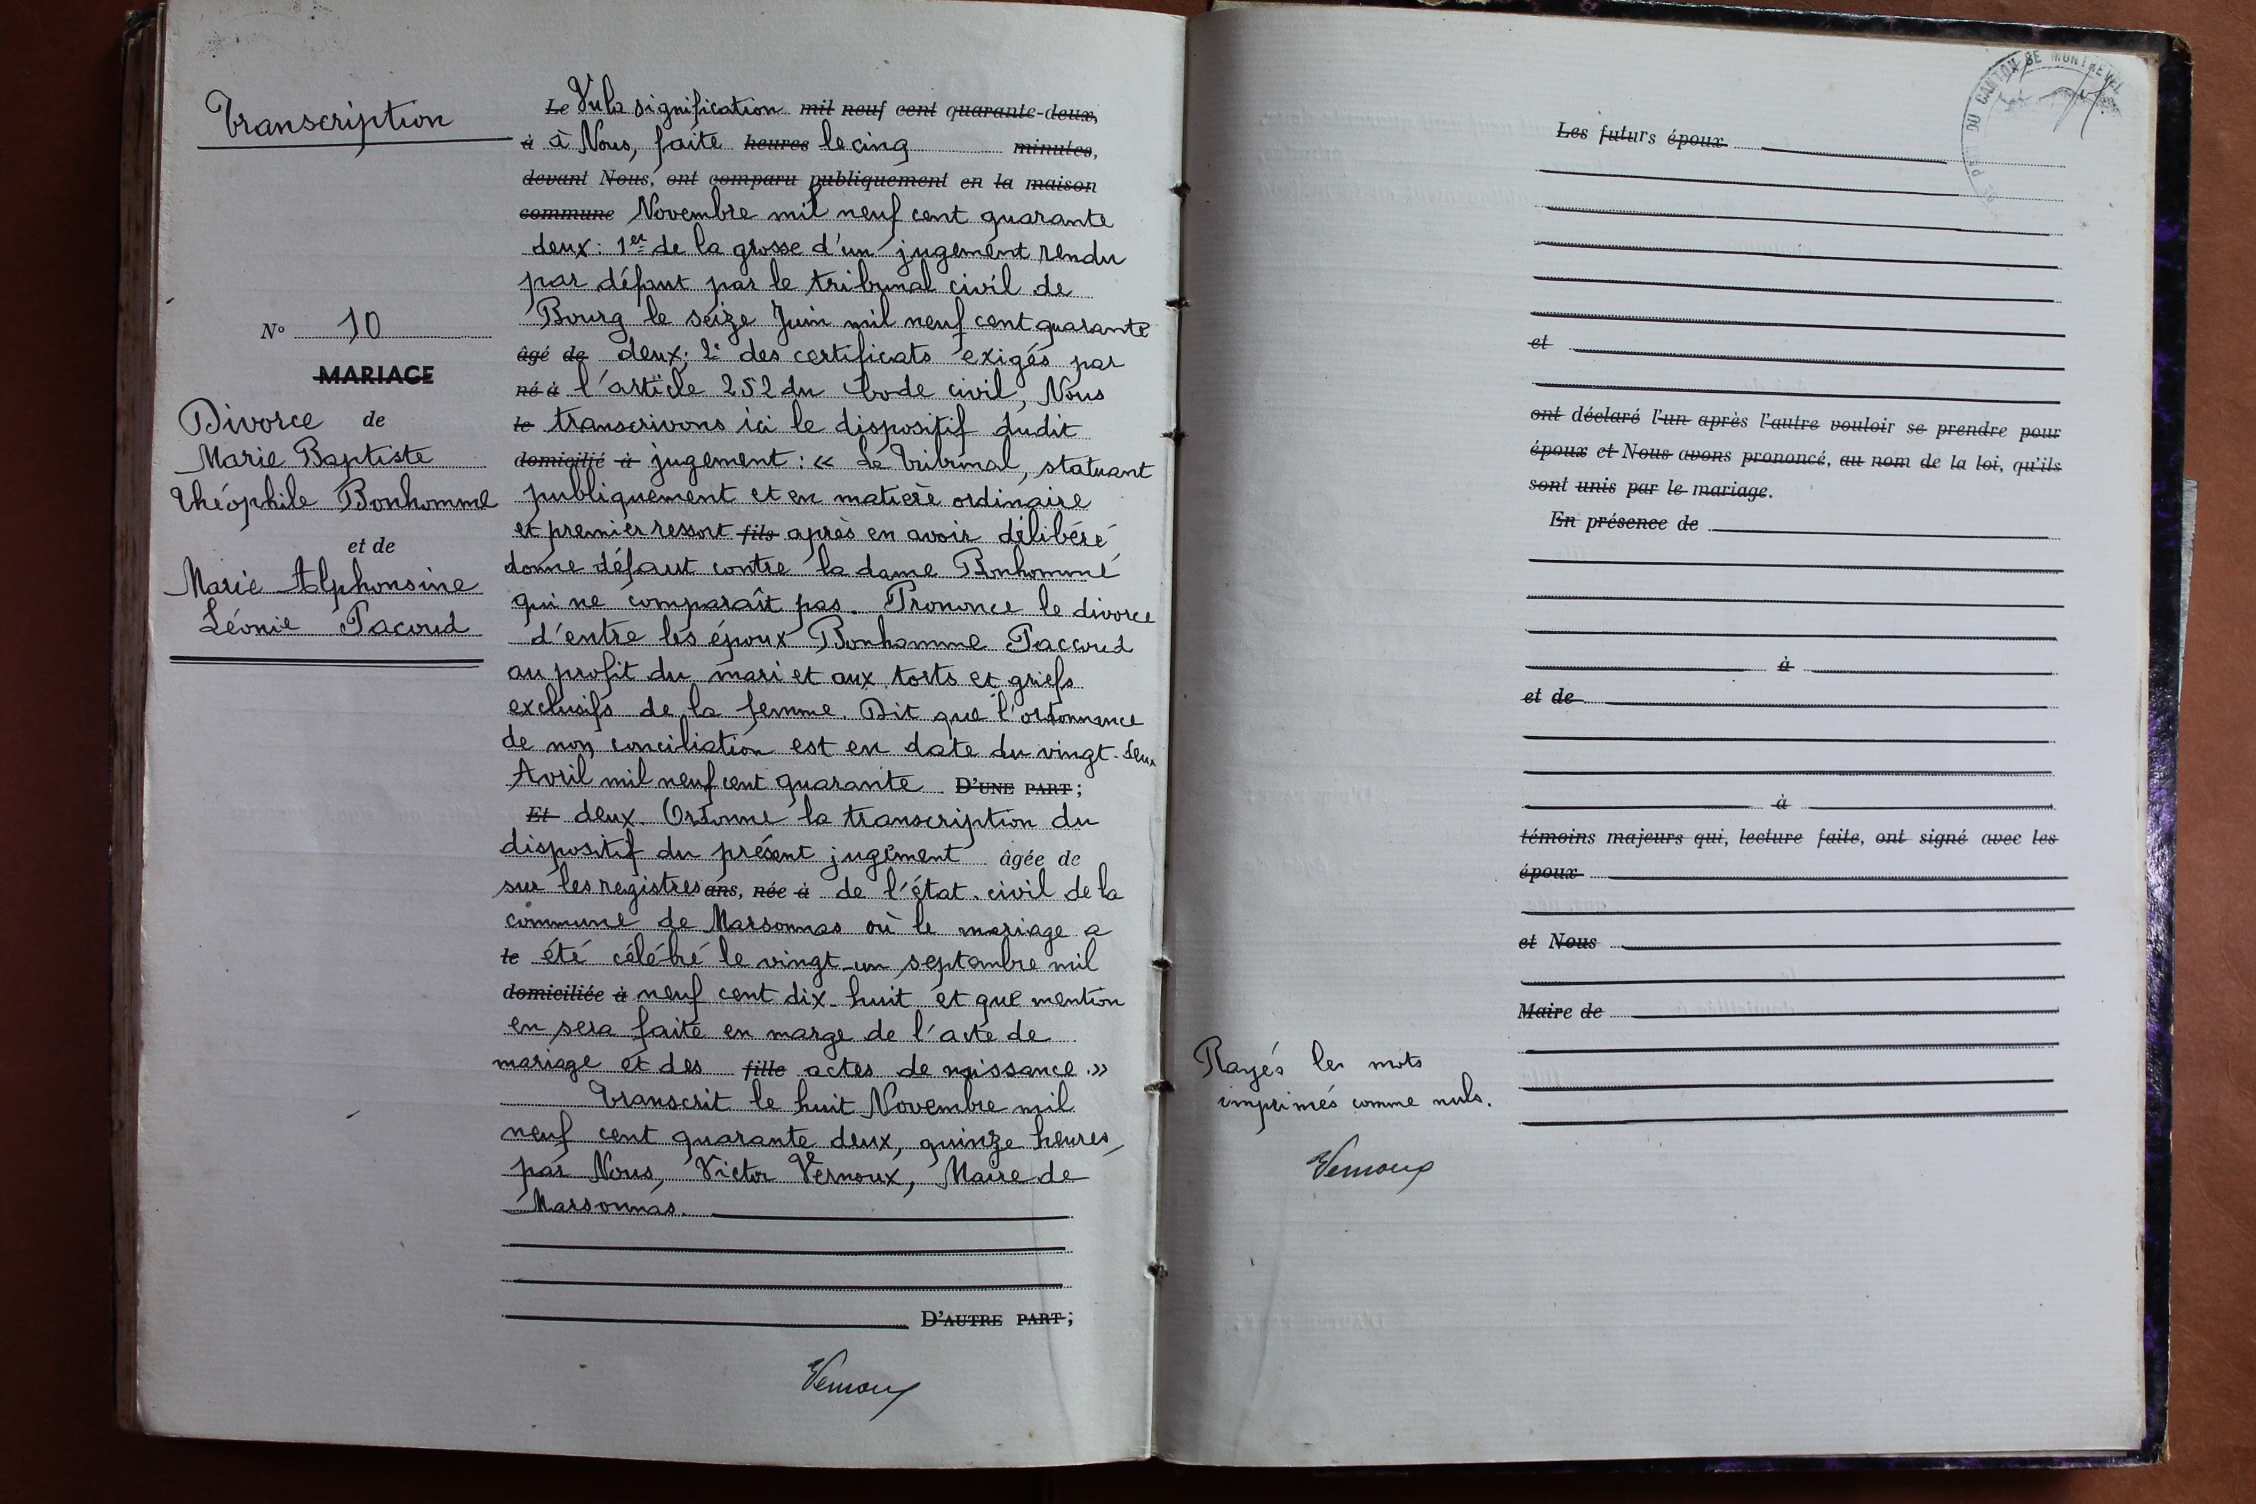 Transcription
N° 10
MARIAGE
Divorce de
Marie Baptiste
Théophile Bonhomme
et de
Marie Alphonsine
Léonie Pacoud
Le Vu la signification mil neuf cent quarante-deux,
à à Nous, faite heures le cinq minutes,
devant Nous, ont comparu publiquement en la maison
commune Novembre mil neuf cent quarante
deux: 1er de la grosse d'un jugement rendu
par défaut par le tribunal civil de
Bourg le seize Juin mil neuf cent quarante
âgé de deux; 2° des certificats exigés par
né à l'article 252 du Code civil, Nous
le transcrivons ici le dispositif dudit
domicilié à jugement: « Le Tribunal, statuant
publiquement et en matière ordinaire
et premier ressort fils après en avoir délibéré
donne défaut contre la dame Bonhomme
qui ne comparaît pas. Prononce le divorce
d'entre les époux Bonhomme Paccoud
au profit du mari et aux torts et griefs
exclusifs de la femme. Dit que l'ordonnance
de non conciliation est en date du vingt-deux
Avril mil neuf cent quarante D'UNE PART;
Et deux. Ordonne la transcription du
dispositif du présent jugement âgée de
sur les registres ans, née à de l'état-civil de la
commune de Marsonnas où le mariage a
le été célébré le vingt-un septembre mil
domiciliée à neuf cent dix-huit et que mention
en sera faite en marge de l'acte de
mariage et des fille actes de naissance.»
Transcrit le huit Novembre mil
neuf cent quarante deux, quinze heures,
par Nous, Victor Vernoux, Maire de
Marsonnas.
D'AUTRE PART;
Vernoux
DU CANTON DE MONTREVEL
Les futurs époux
et
ont déclaré l'un après l'autre vouloir se prendre pour
époux et Nous avons prononcé, au nom de la loi, qu'ils
sont unis par le mariage.
En présence de
à
et de
à
témoins majeurs qui, lecture faite, ont signé avec les
époux
et Nous
Maire de
Rayés les mots
imprimés comme nuls.
Vernoux